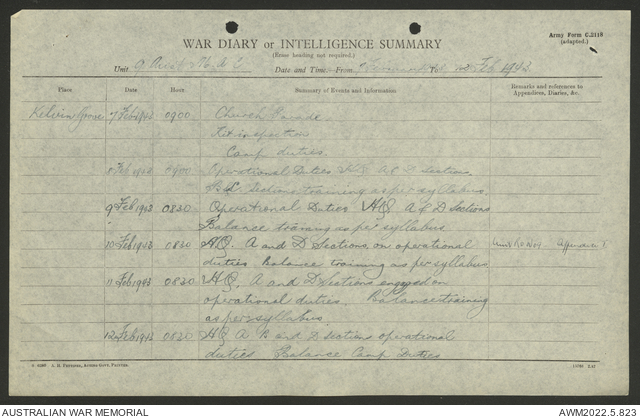 Army Form C.2118
(adapted.)
WAR DIARY or INTELLIGENCE SUMMARY
(Erase heading not required.)
Unit
Date and Time: From Feb 1943
Place Date Hour Summary of Events and Information Remarks and references to Appendices, Diaries, &c.
Kelvin Grove 7 Feb 1943 0900 Church Parade.
Kit inspection
Camp duties.
8 Feb 1943 0900 Operational Duties HQ A & D Sections
Sections training as per syllabus.
9 Feb 1943 0830 Operational Duties HQ A & D Sections
Balance training as per syllabus
10 Feb 1943 0830 HQ. A and D Sections, on operational
duties Balance training as per syllabus.
11 Feb 1943 0830 HQ, A and D Sections engaged on
operational duties. Balance training
as per syllabus.
12 Feb 1943 0830 HQ A B and D Sections operational
duties Balance Camp Duties
A. H. Pettifer, Acting Govt. Printer.
AUSTRALIAN WAR MEMORIAL
AWM2022.5.823